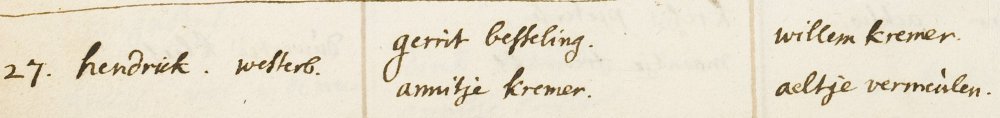 27. hendrick. westerb.
gerrit besseling.
annitje kremer.
willem kremer.
aeltje vermeulen.